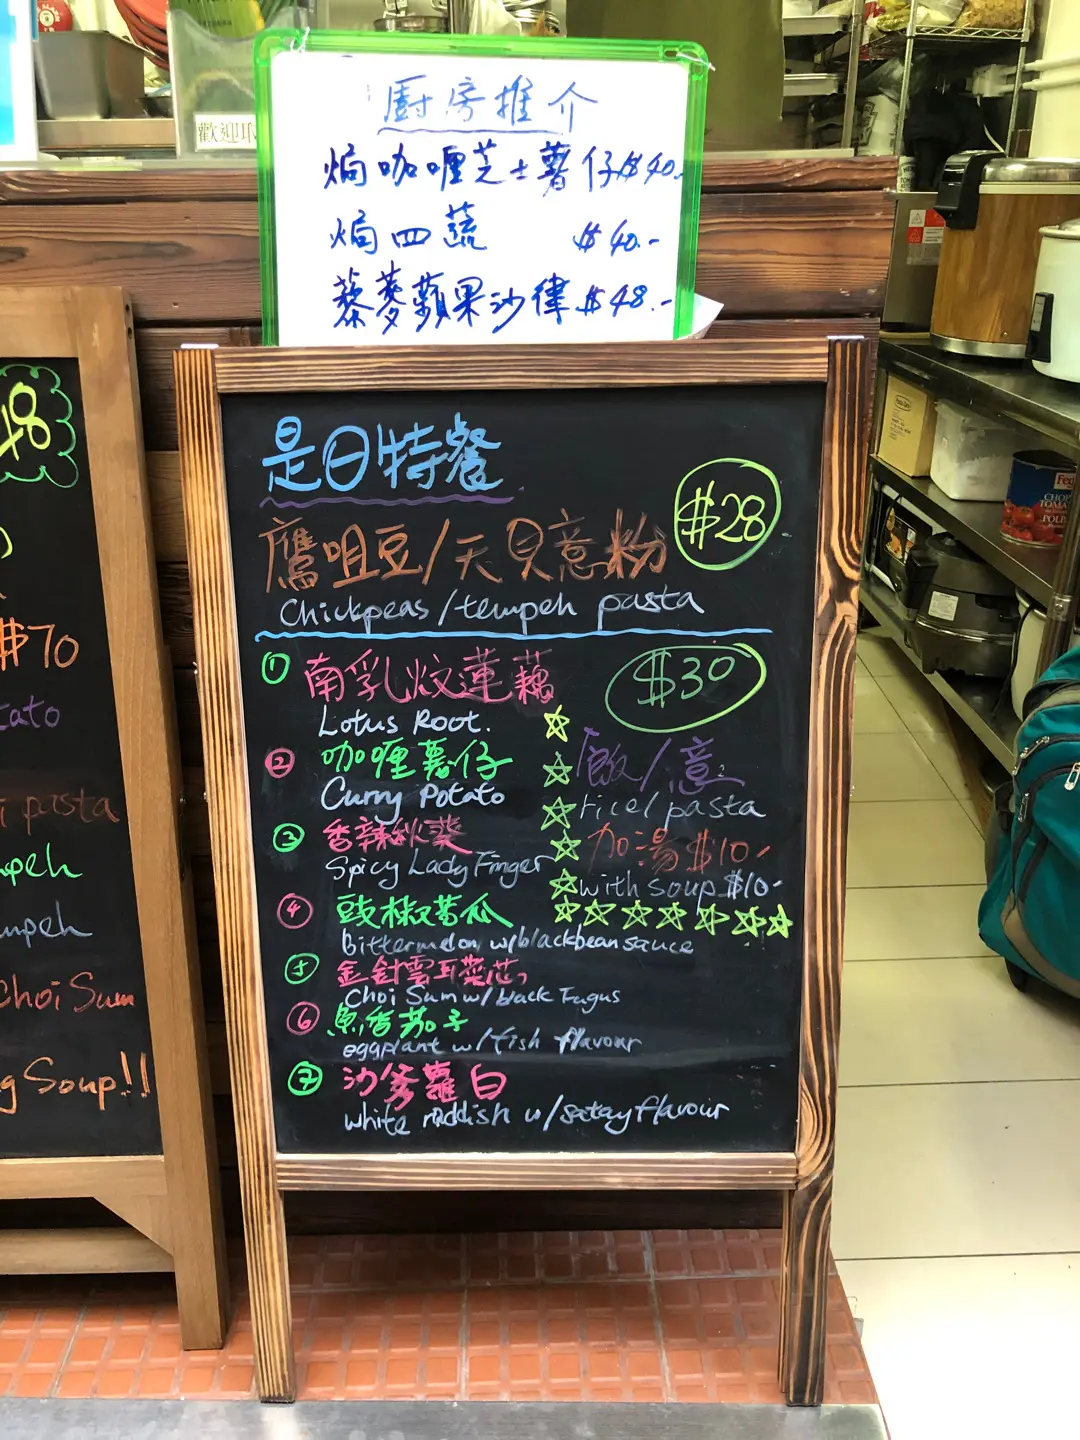 歡迎
廚房推介
焗咖喱芝士薯仔$40.-
焗四蔬 $40.-
藜麥蘋果沙律$48.-
是日特餐
鷹咀豆/天貝意粉 $28
Chickpeas/tempeh pasta
① 南乳炆蓮藕 $30
Lotus Root.
② 咖喱薯仔
Curry Potato
③ 香辣秋葵
Spicy Lady Finger
④ 豉椒苦瓜
Bittermelon w/blackbean sauce
⑤ 金針雲耳菜芯
Choi Sum w/black Fugus
⑥ 魚香茄子
eggplant w/fish flavour
⑦ 沙爹蘿白
white raddish w/satay flavour
飯/意
rice/pasta
加湯$10.-
with soup $10-
$70
tato
i pasta
mpeh
mpeh
Choi Sum
g Soup!!